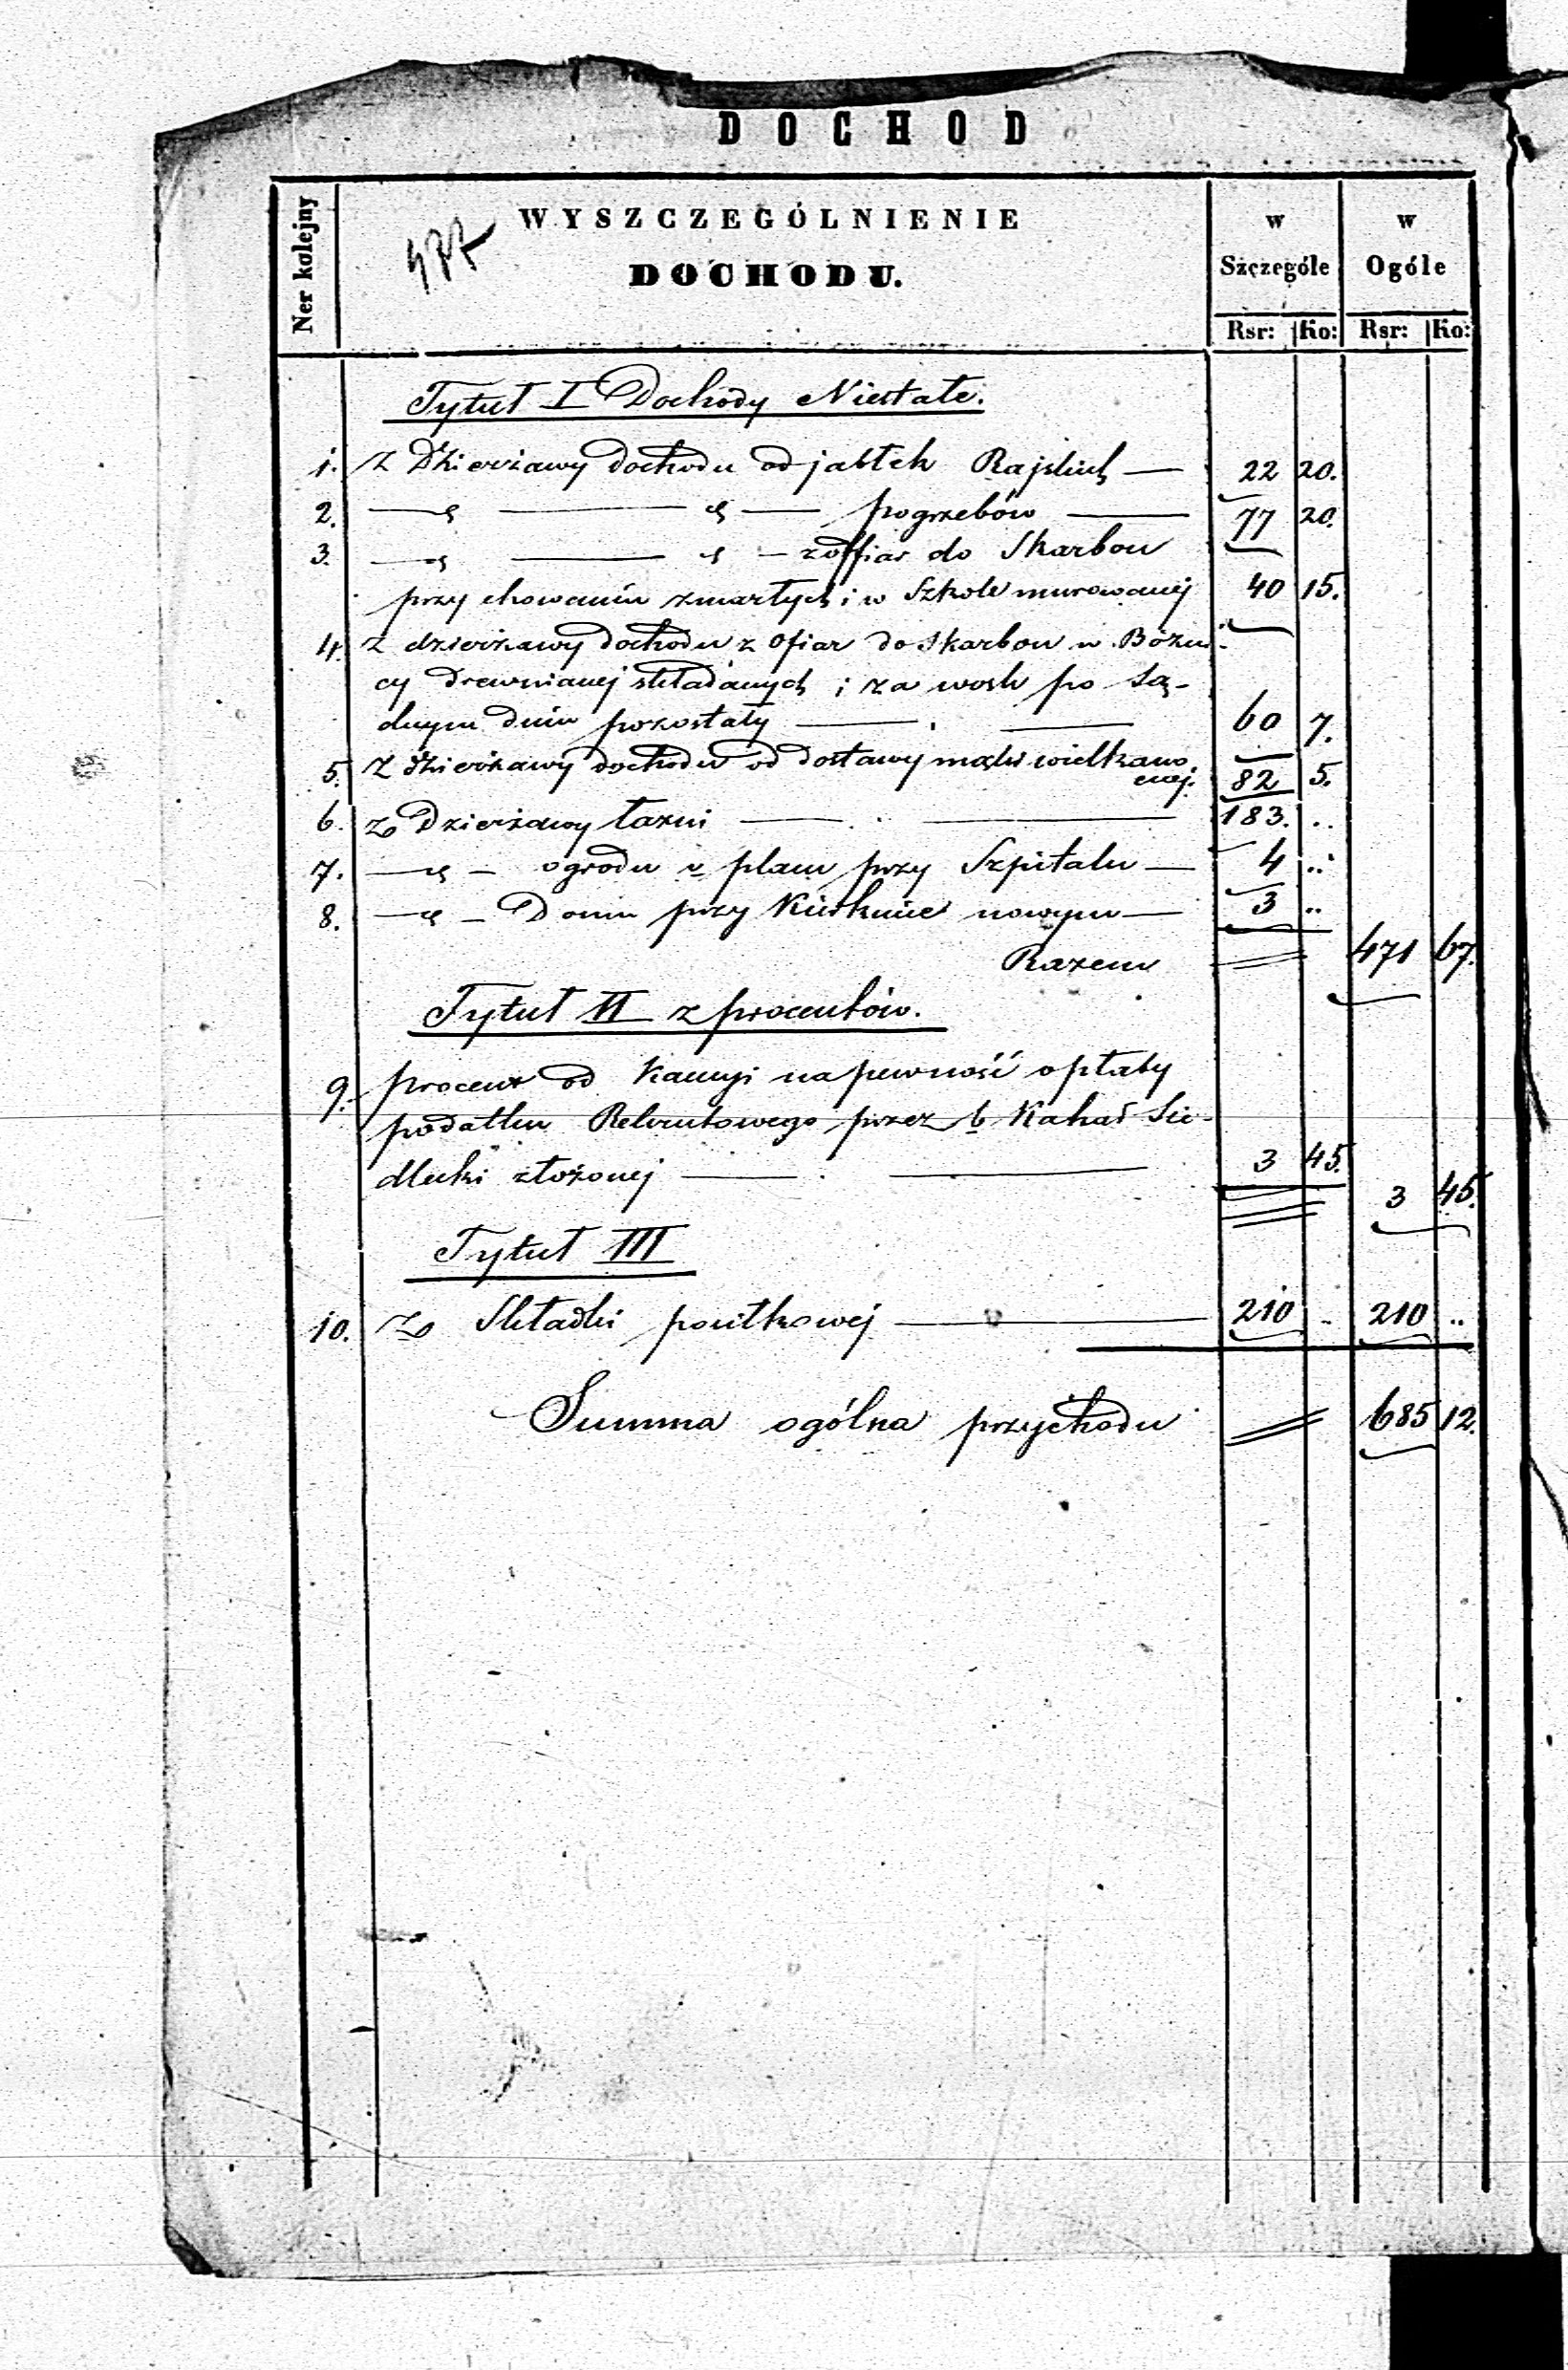 DOCHOD
Ner kolejny
WYSZCZEGÓLNIENIE
DOCHODU.
w Szczególe
w Ogóle
Rsr: Ko: Rsr: Ko:
Tytuł I Dochody Niestałe.
1. Z Dzierżawy dochodu od jabłek Rajskich — 22 20.
2. — „ — „ — pogrzebów — 77 20.
3. — „ — „ — z offiar do Skarbon
przy chowaniu zmarłych i w Szkole murowanej 40 15.
4. Z dzierżawy dochodu z ofiar do skarbon w Bóżni-
cy drewnianej składanych i za wosk po Są-
dnym dniu pozostały — 60 7.
5. Z dzierżawy dochodu od dostawy mąki wielkano-
cnej. 82 5.
6. Z Dzierżawy łaźni — 183. ..
7. — „ — ogrodu v placu przy Szpitalu — 4 ..
8. — „ — Domu przy Kirkucie nowym — 3 ..
Razem 471 67.
Tytuł II z procentów.
9. procent od Kaucyi na pewność opłaty
podatku Rekrutowego przez b Kahał Sie-
dlecki złożonej — 3 45. 3 45.
Tytuł III
10. Ze Składki posiłkowej — 210 .. 210 ..
Summa ogólna przychodu 685 12.